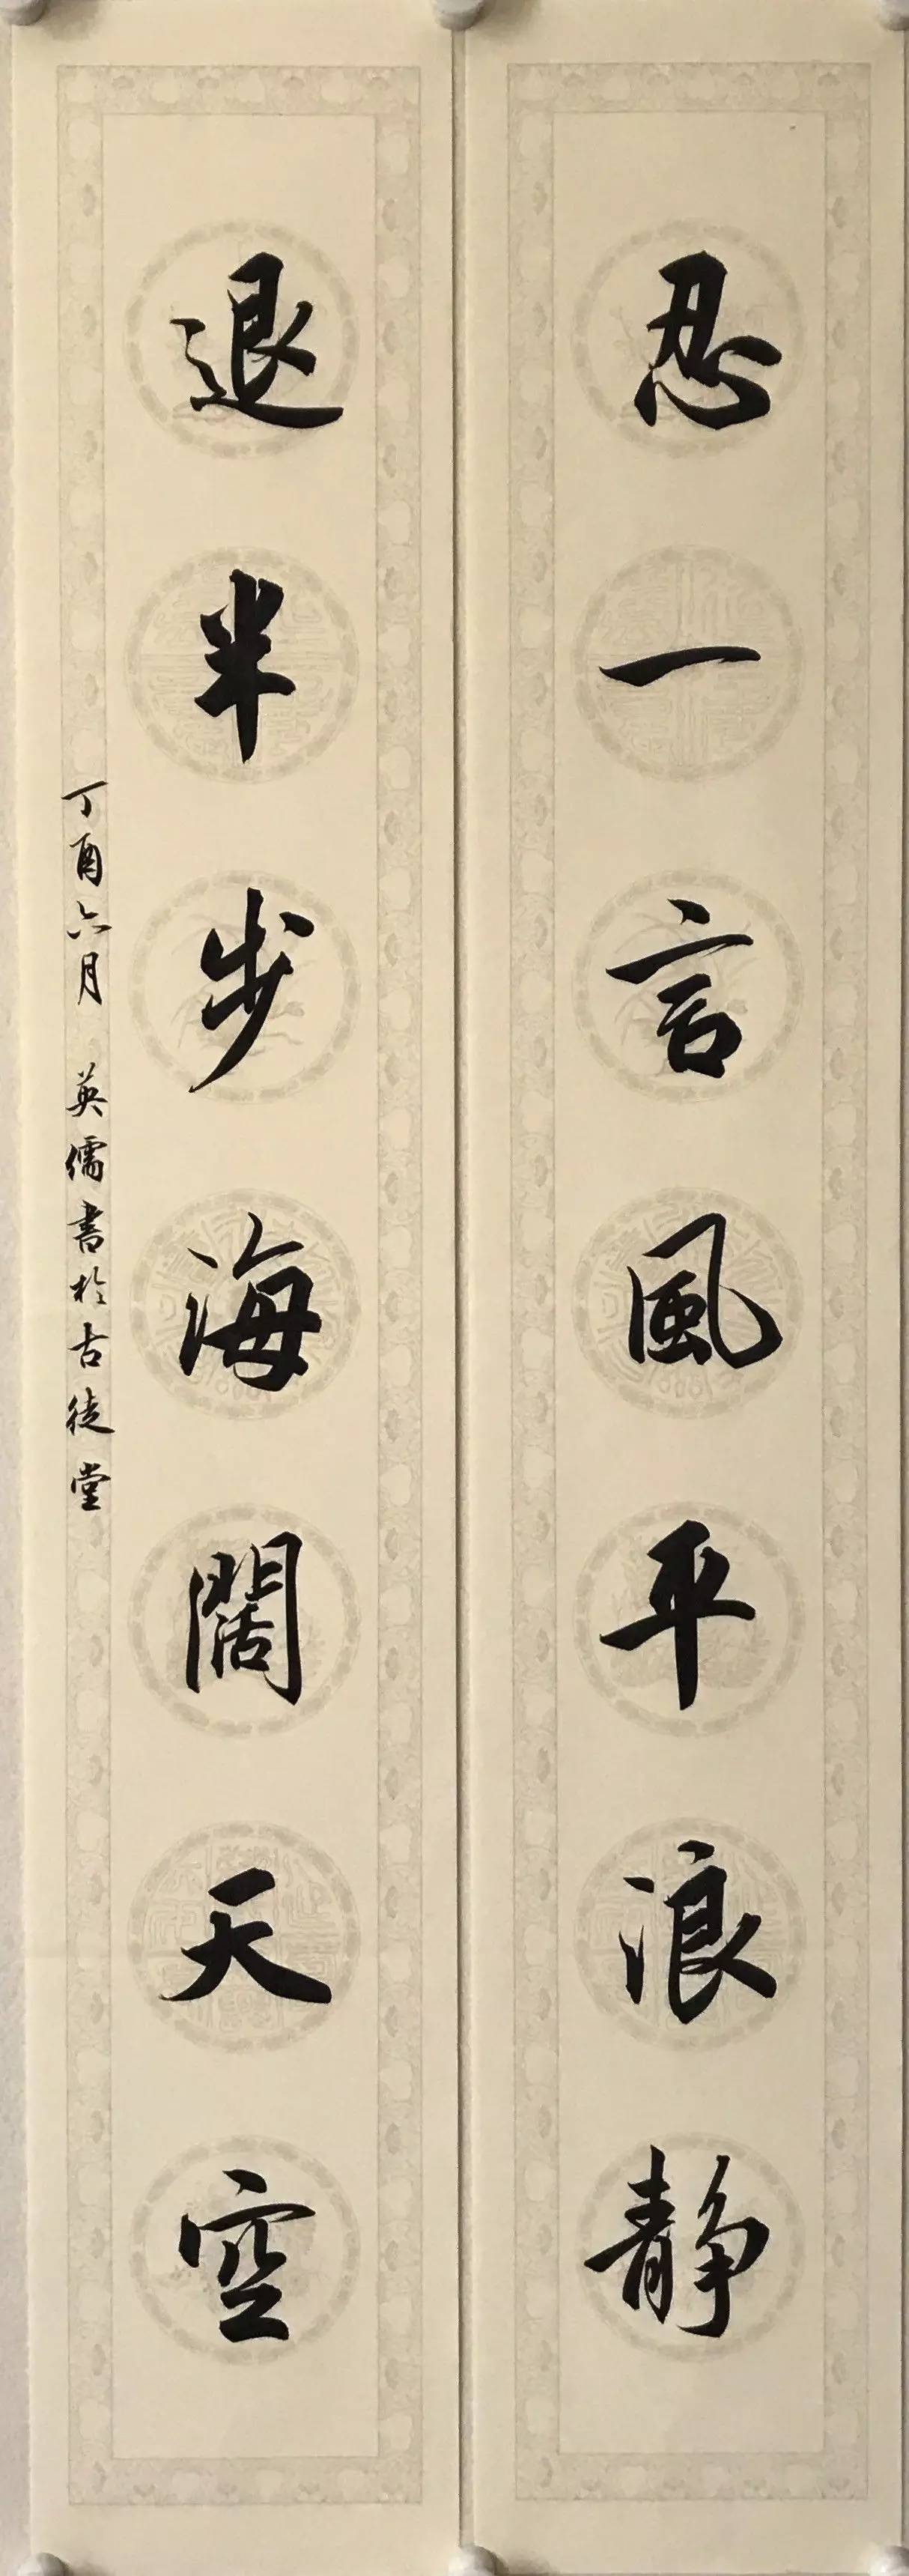 忍一言風平浪静
退半步海闊天空
丁酉六月 英儒書於古徒堂